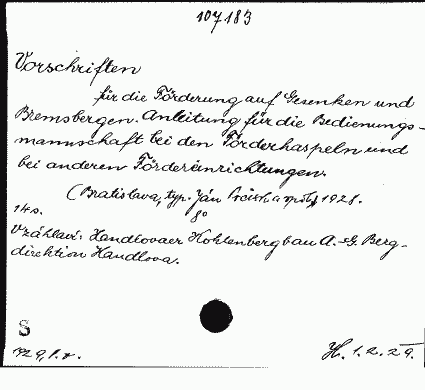 107183
Vorschriften
für die Förderung auf Gesenken und
Bremsbergen. Anleitung für die Bedienungs-
mannschaft bei den Förderhaspeln und
bei anderen Fördereinrichtungen.
(Bratislava, typ. Ján a spol.) 1928.
14 s. 8°
V záhlaví: Handlovaer Kohlenbergbau A.-G. Berg-
direktion Handlova.
S
H. 1. 2. 29.